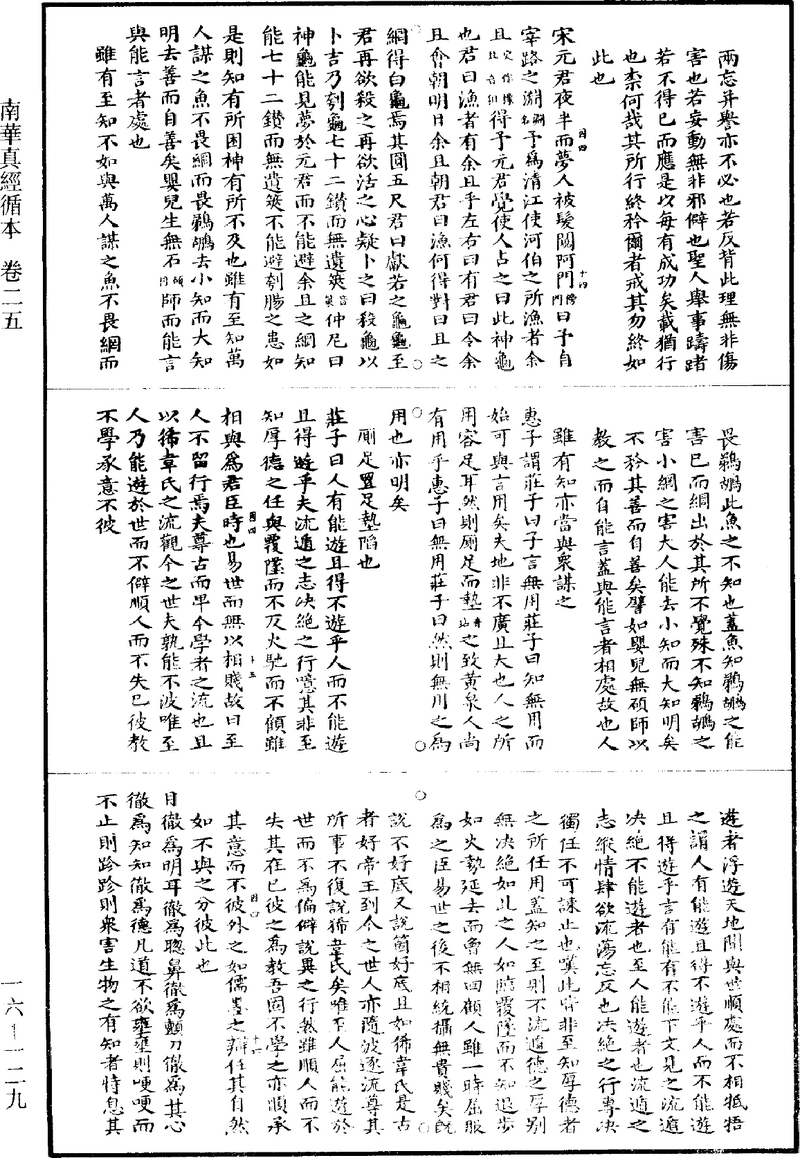 兩忘幷譽亦不必也若反背此理無非傷
害也若妄動無非邪僻也聖人舉事躊躇
若不得已而應是以每有成功矣載猶行
也柰何哉其所行終矜爾者戒其勿終如
此也
宋元君夜半而夢人被髮闚阿門曰予自
宰路之淵予爲清江使河伯之所漁者余
且得予元君覺使人占之曰此神龜
也君曰漁者有余且乎左右曰有君曰令余
且會朝明日余且朝君曰漁何得對曰且之
網得白龜焉其圓五尺君曰獻若之龜龜至
君再欲殺之再欲活之心疑卜之曰殺龜以
卜吉乃刳龜七十二鑽而無遺筴仲尼曰
神龜能見夢於元君而不能避余且之網知
能七十二鑽而無遺筴不能避刳腸之患如
是則知有所困神有所不及也雖有至知萬
人謀之魚不畏網而畏鵜鶘去小知而大知
明去善而自善矣嬰兒生無石師而能言
與能言者處也
雖有至知不如與萬人謀之魚不畏網而
畏鵜鶘此魚之不知也蓋魚知鵜鶘之能
害己而網出於其所不覺殊不知鵜鶘之
害小網之害大人能去小知而大知明矣
不矜其善而自善矣譬如嬰兒無碩師以
教之而自能言蓋與能言者相處故也人
雖有知亦當與衆謀之
惠子謂莊子曰子言無用莊子曰知無用而
始可與言用矣夫地非不廣且大也人之所
用容足耳然則厠足而墊之致黃泉人尚
有用乎惠子曰無用莊子曰然則無用之爲
用也亦明矣
厠足置足墊陷也
莊子曰人有能遊且得不遊乎人而不能遊
且得遊乎夫流遁之志决絕之行噫其非至
知厚德之任與覆墜而不反火馳而不顧雖
相與爲君臣時也易世而無以相賤故曰至
人不留行焉夫尊古而卑今學者之流也且
以狶韋氏之流觀今之世夫孰能不波唯至
人乃能遊於世而不僻順人而不失己彼教
不學承意不彼
遊者浮遊天地間與世順處而不相牴牾
之謂人有能遊且得不遊乎人而不能遊
且得遊乎言有能有不能下文見之流遁
决絕不能遊者也至人能遊者也流遁之
志縱情肆欲流蕩忘反也决絕之行專决
獨任不可諫止也嘆此皆非至知厚德者
之所任用蓋知之至則不流遁德之厚則
無决絕如此之人如臨覆墜而不知退步
如火勢延去而魯無回顧人雖一時屈服
爲之臣易世之後不相統攝無貴賤矣旣
說不好底又說箇好底且如狶韋氏是古
者好帝王到今之世人亦隨波逐流尊其
所事不復說狶韋氏矣唯至人屈能遊於
世而不爲偏僻說異之行然雖順人而不
失其在己彼之爲教吾固不學之亦順承
其意而不彼外之如儒墨之辯任其自然
如不與之分彼此也
目徹爲明耳徹爲聰鼻徹爲顫口徹爲甘心
徹爲知知徹爲德凡道不欲壅壅則哽哽而
不止則跈跈則衆害生物之有知者恃息其
南華真經循本 卷二五
一六—一二九